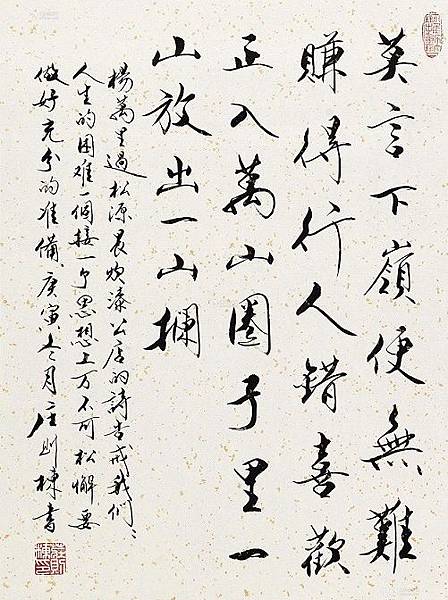 莫言下嶺便無難
賺得行人錯喜歡
正入萬山圈子里一
山放出一山攔
楊萬里過松源晨炊漆公店的詩告戒我們
人生的困难一個接一个思想上万不可松懈要
做好充分的准備庚寅冬月庄则棟書